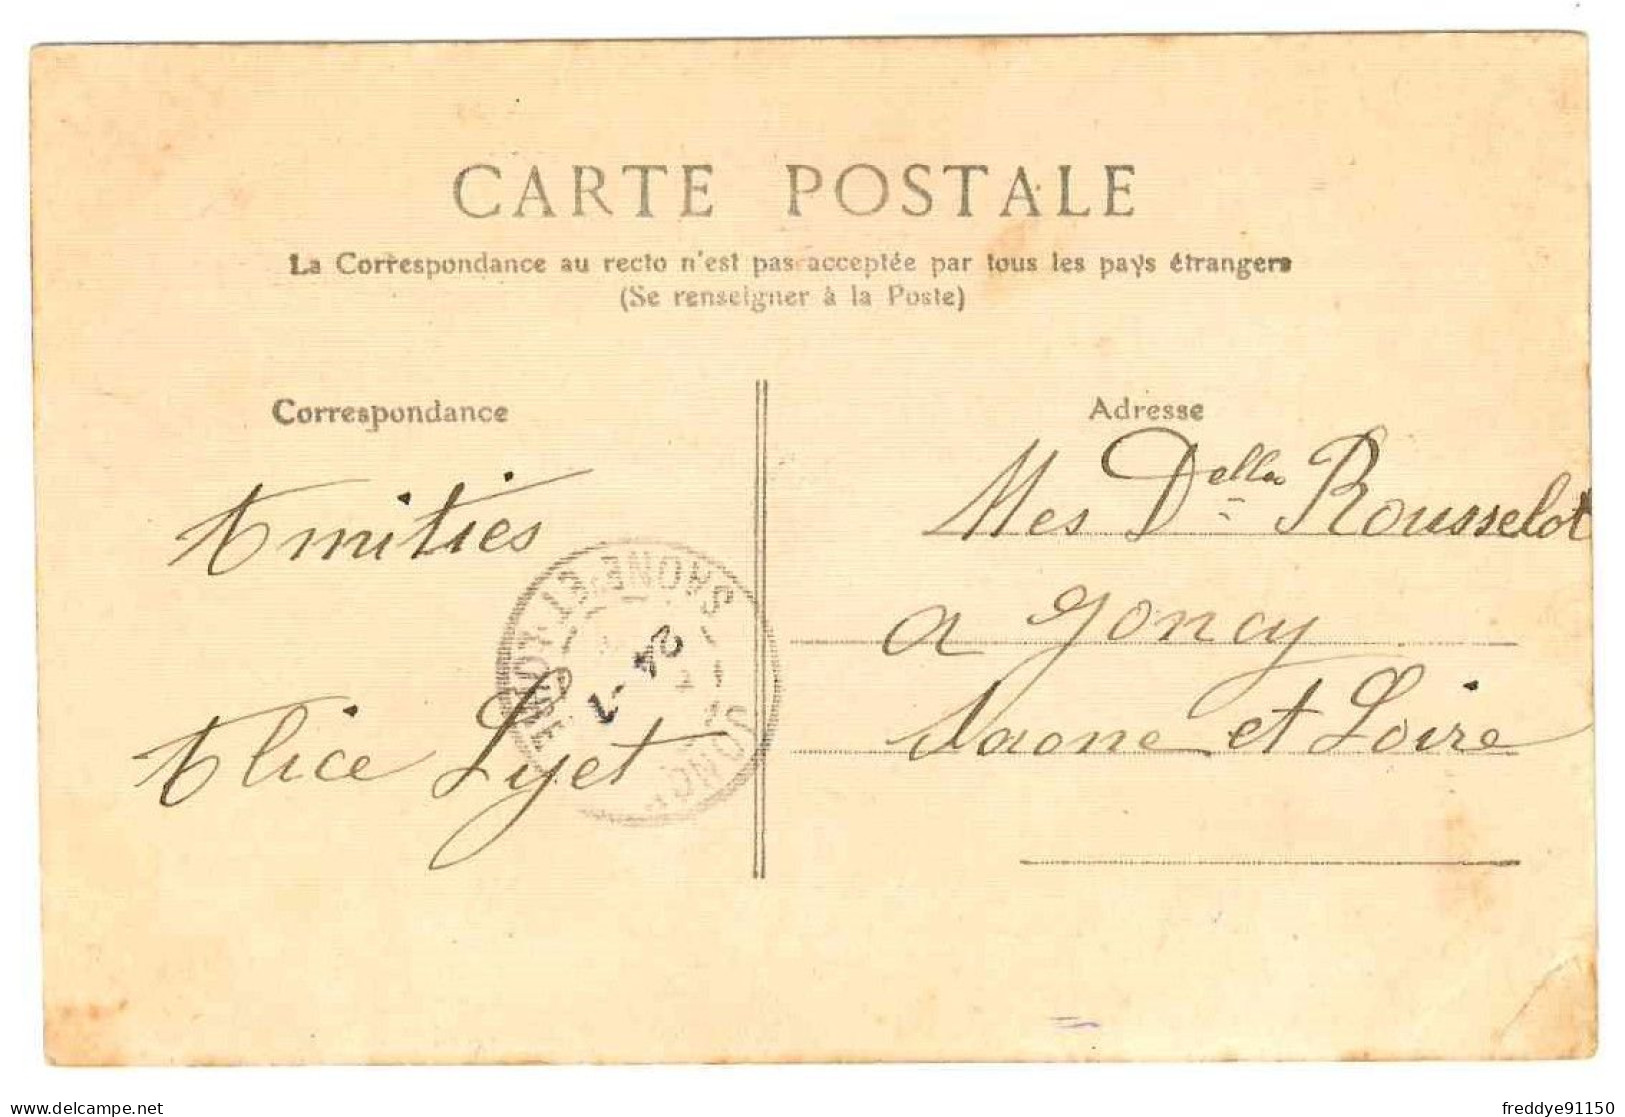 CARTE POSTALE
La Correspondance au recto n'est pas acceptée par tous les pays étrangers
(Se renseigner à la Poste)
Correspondance
Amitiés
Alice Lyet
SAONE-ET-LOIRE
24 -1
JONCY
Adresse
Mes Delles Rousselot
a Joncy
Saone et Loire
delcampe.net
freddye91150